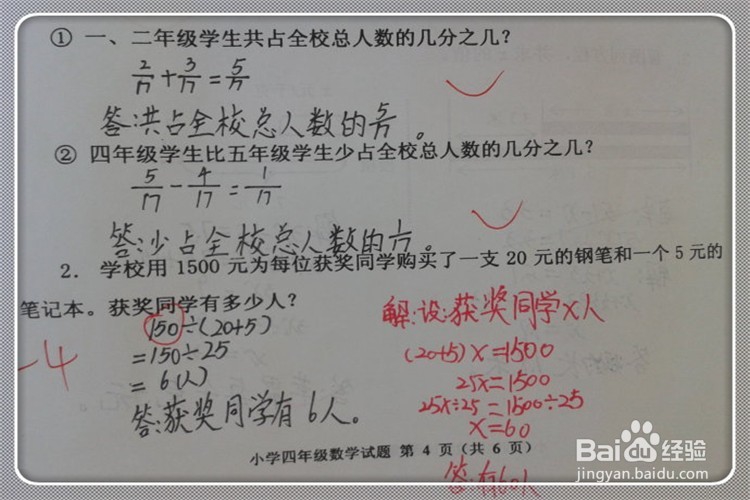 ① 一、二年级学生共占全校总人数的几分之几？
2/17+3/17=5/17
答:共占全校总人数的5/17。
② 四年级学生比五年级学生少占全校总人数的几分之几？
5/17-4/17=1/17
答:少占全校总人数的1/17。
2. 学校用 1500 元为每位获奖同学购买了一支 20 元的钢笔和一个 5 元的
笔记本。获奖同学有多少人？
150÷(20+5)
=150÷25
=6(人)
答:获奖同学有6人。
-4
解:设:获奖同学X人
(20+5)X=1500
25X=1500
25X÷25=1500÷25
X=60
答:有60人
小学四年级数学试题 第 4 页（共 6 页）
Baidu经验
jingyan.baidu.com